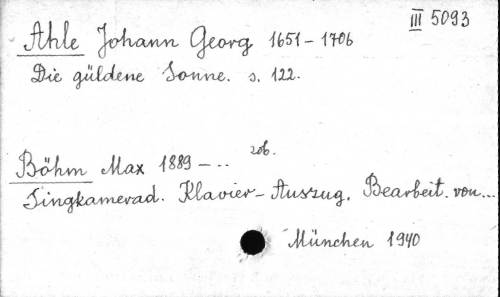 III 5093
Ahle Johann Georg 1651-1706
Die güldene Sonne. s. 122.
zob.
Böhm Max 1889-..
Singkamerad. Klavier-Auszug. Bearbeit. von...
München 1940